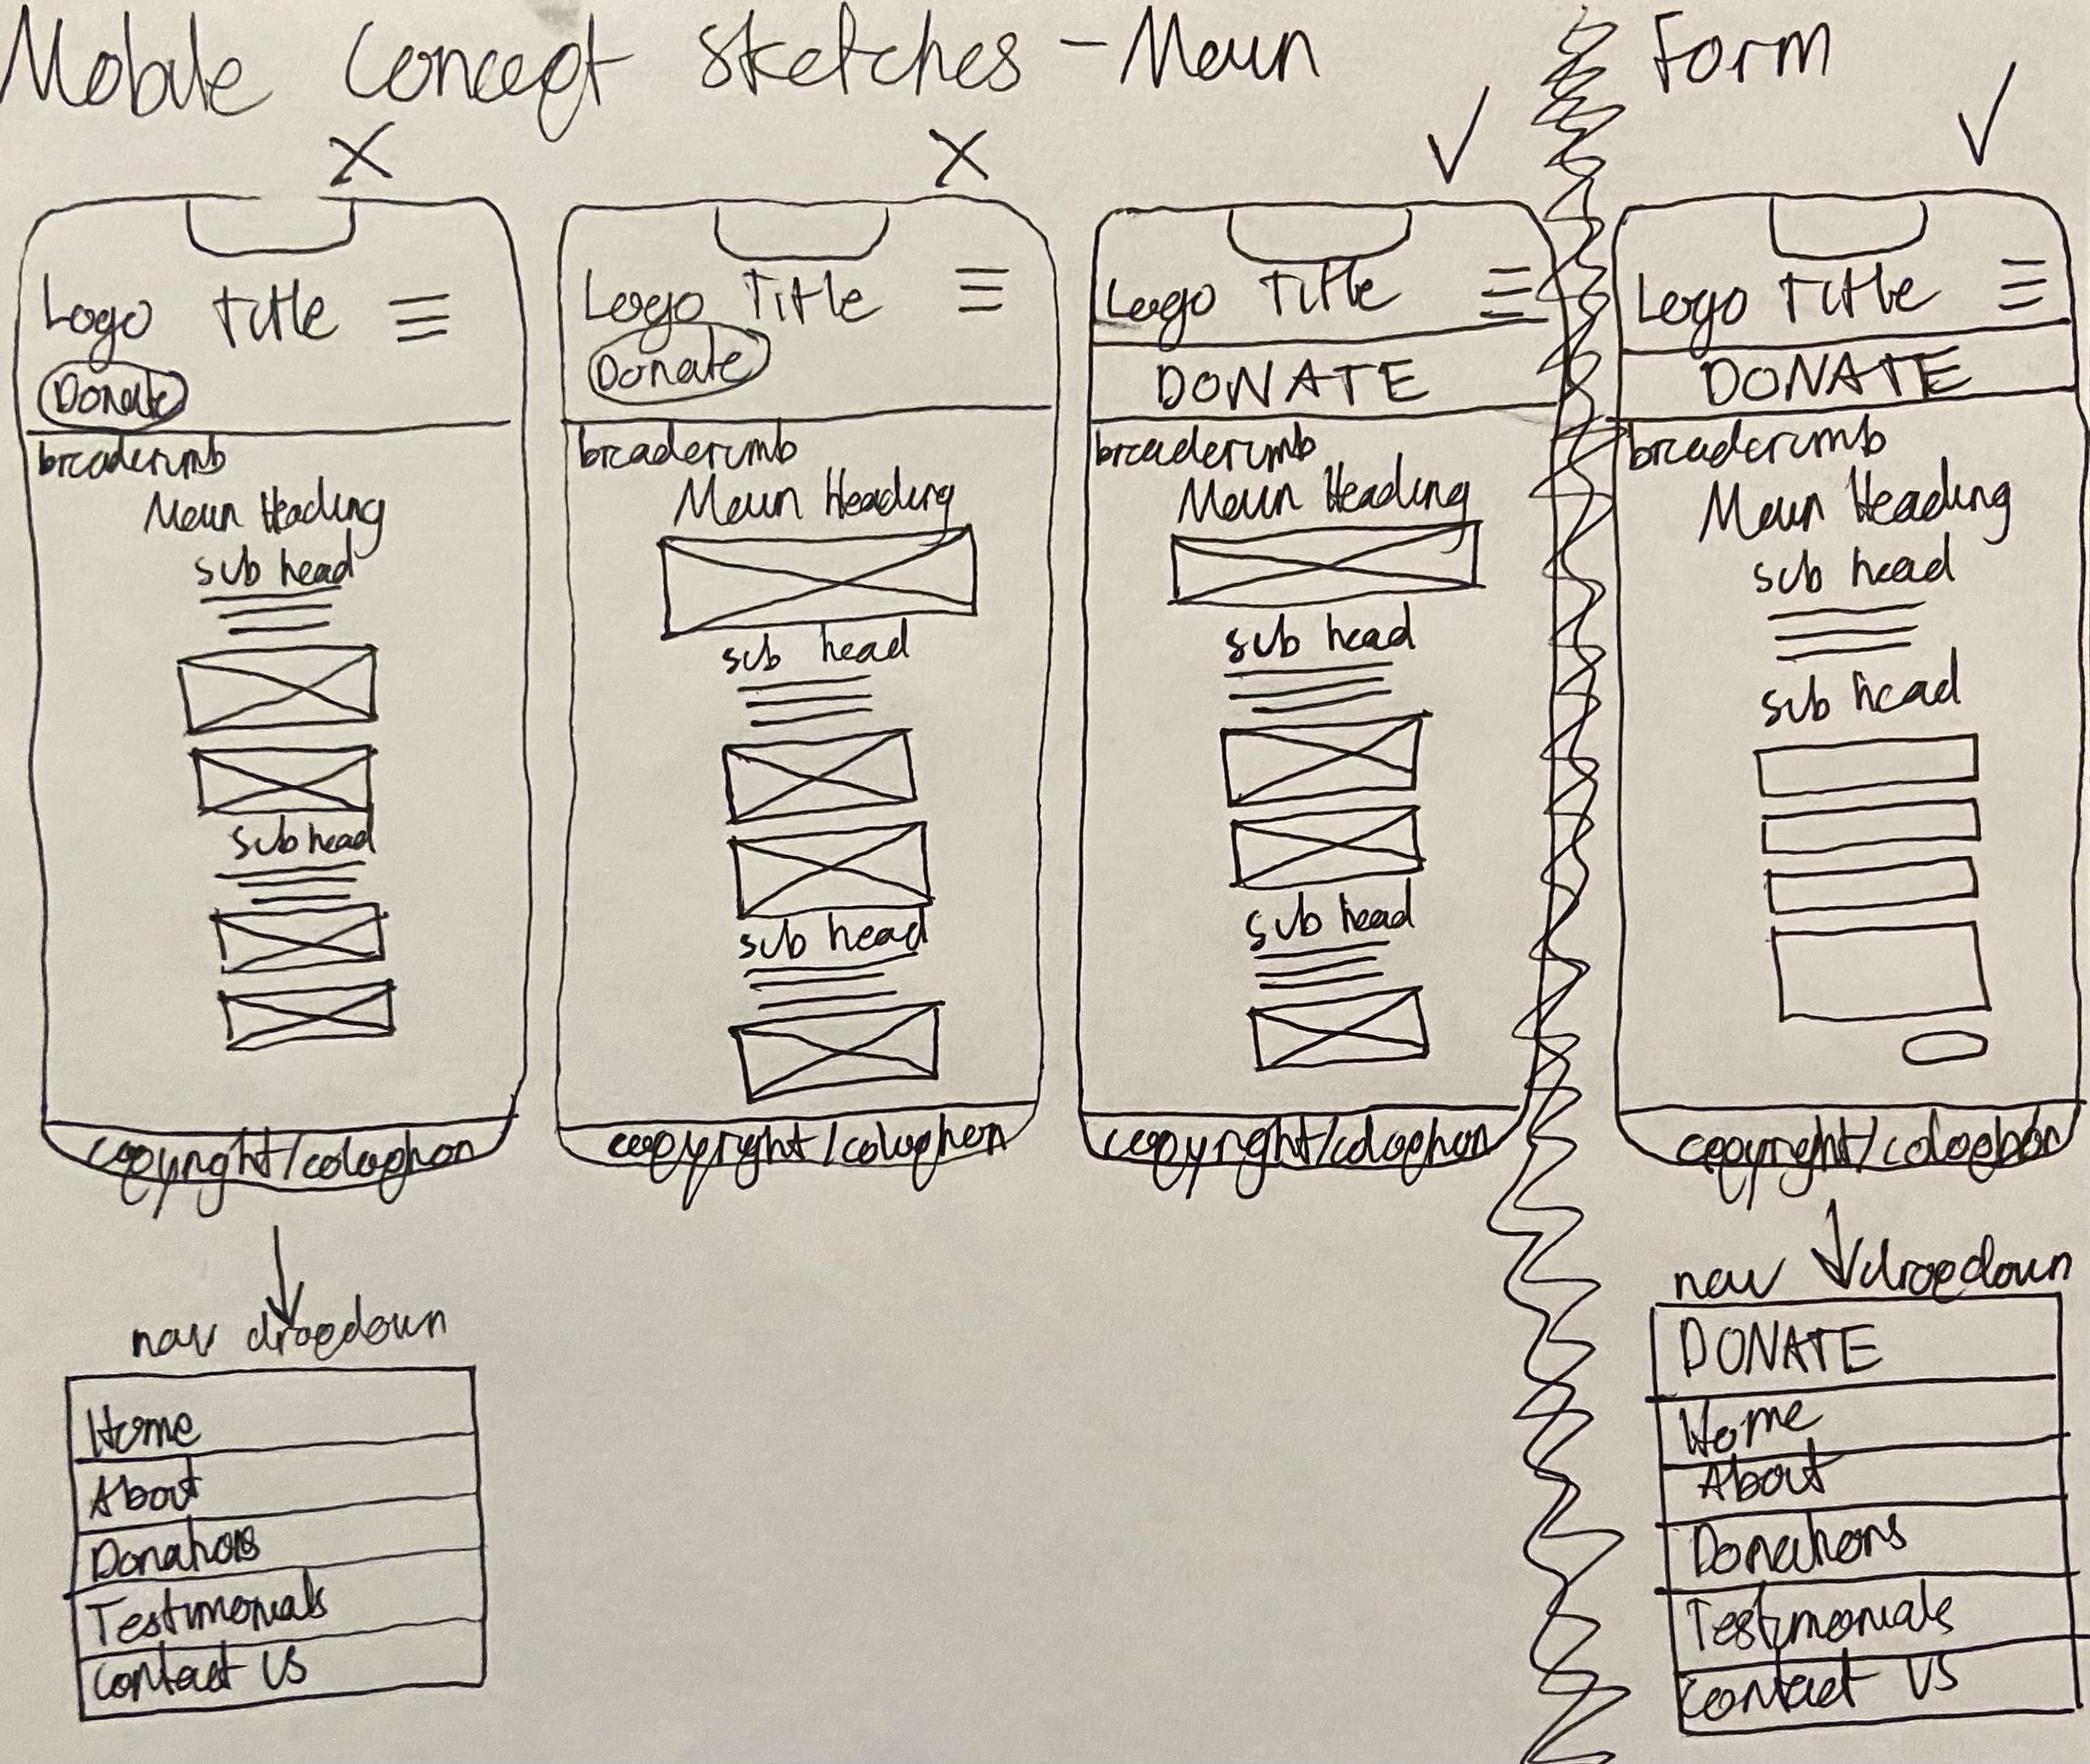 Mobile Concept Sketches - Main
Form
Logo Title
Donate
breadcrumb
Main Heading
sub head
sub head
copyright/colophon
nav dropdown
Home
About
Donations
Testimonials
Contact Us
Logo Title
Donate
breadcrumb
Main Heading
sub head
sub head
copyright/colophon
Logo Title
DONATE
breadcrumb
Main Heading
sub head
sub head
copyright/colophon
Logo Title
DONATE
breadcrumb
Main Heading
sub head
sub head
copyright/colophon
nav dropdown
DONATE
Home
About
Donations
Testimonials
Contact US